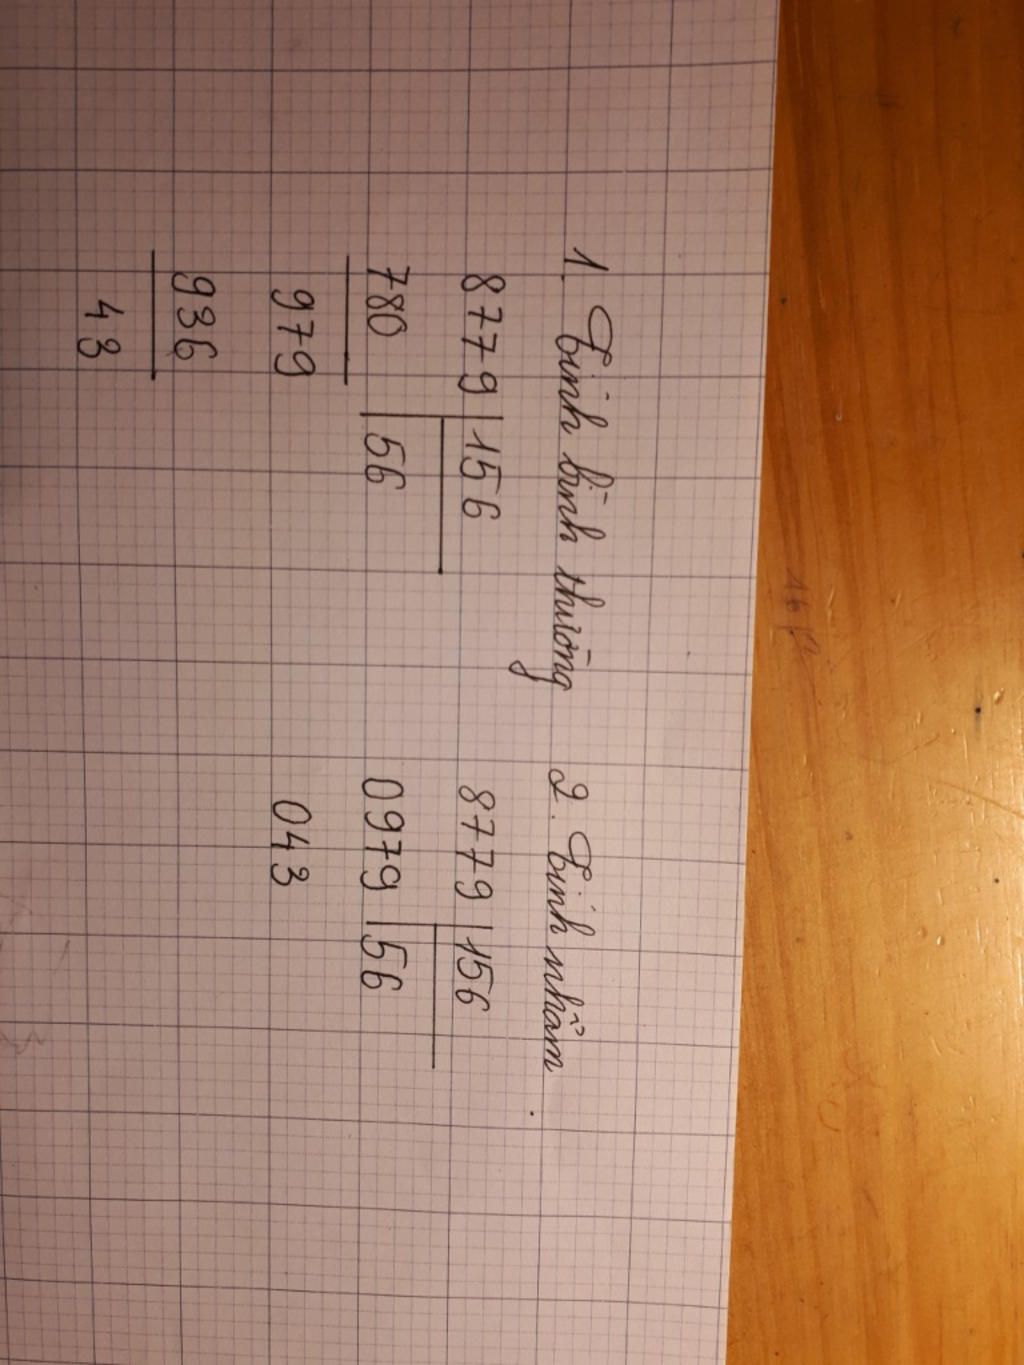 1. Tính bình thường 2. Tính nhẩm
8779 156 8779 156
780 56 0979 56
979 043
936
43